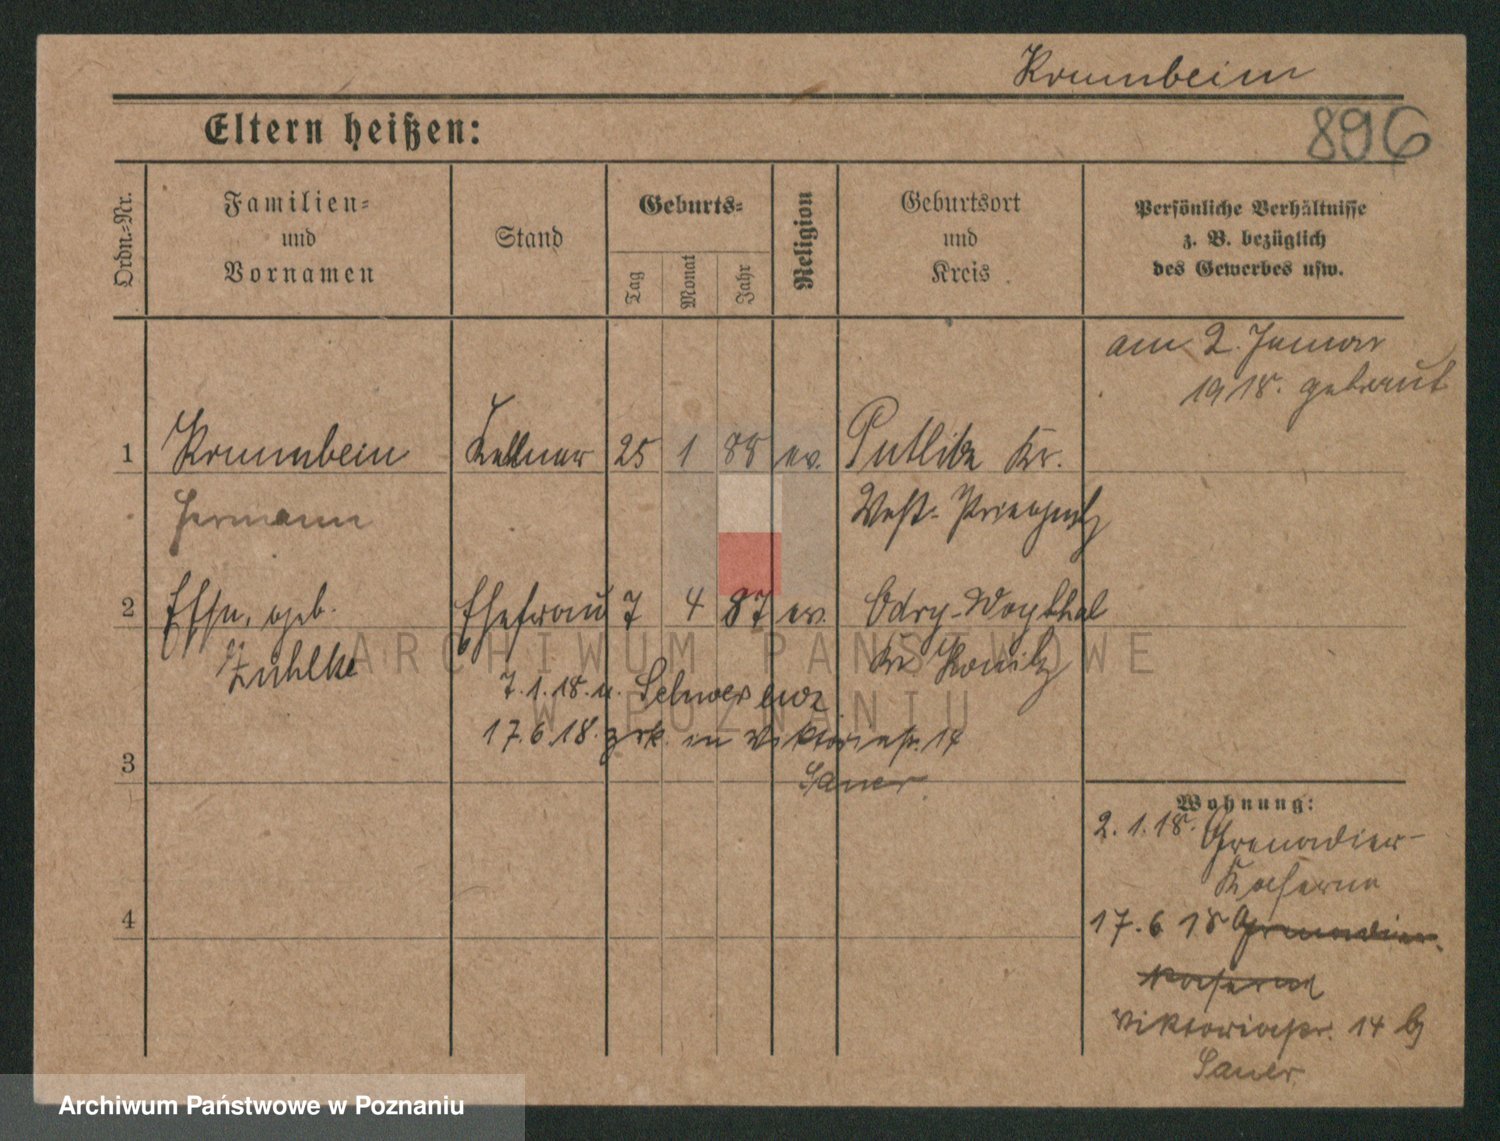 Krumbein
896
Eltern heißen:
Ordn.-Nr.
Familien-
und
Vornamen
Stand
Geburts-
Tag
Monat
Jahr
Religion
Geburtsort
und
Kreis
Persönliche Verhältnisse
z. B. bezüglich
des Gewerbes usw.
am 2. Januar
1918. getraut
1 Krumbein Kellner 25 1 88 ev. Putlitz Kr.
Hermann West-Priegnitz
2 Ehefr. geb. Ehefrau 7 4 87 ev. Odry-
Zühlke Kr Konitz
7.1.18. n.
17.6.18. zrk. in Viktoriastr. 14
Sauer
3
Wohnung:
2.1.18. Grenadier-
Kaserne
4
17.6 18 Grenadier-
Kaserne
Viktoriastr. 14 b/
Sauer
ARCHIWUM PAŃSTWOWE
W POZNANIU
Archiwum Państwowe w Poznaniu